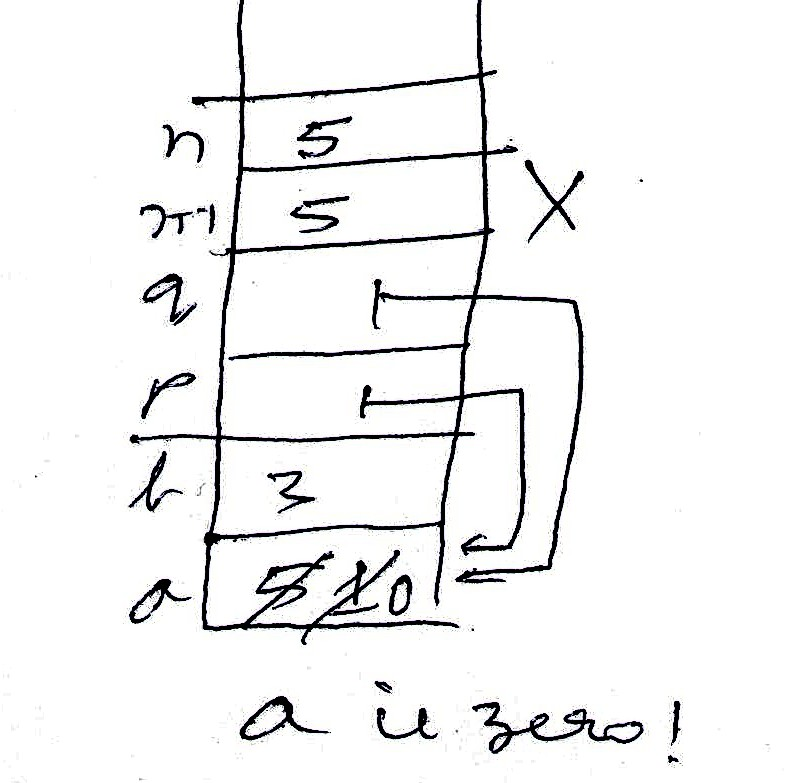 n 5
m 5
X
q
p
b 3
a 5 1 0
a is zero!